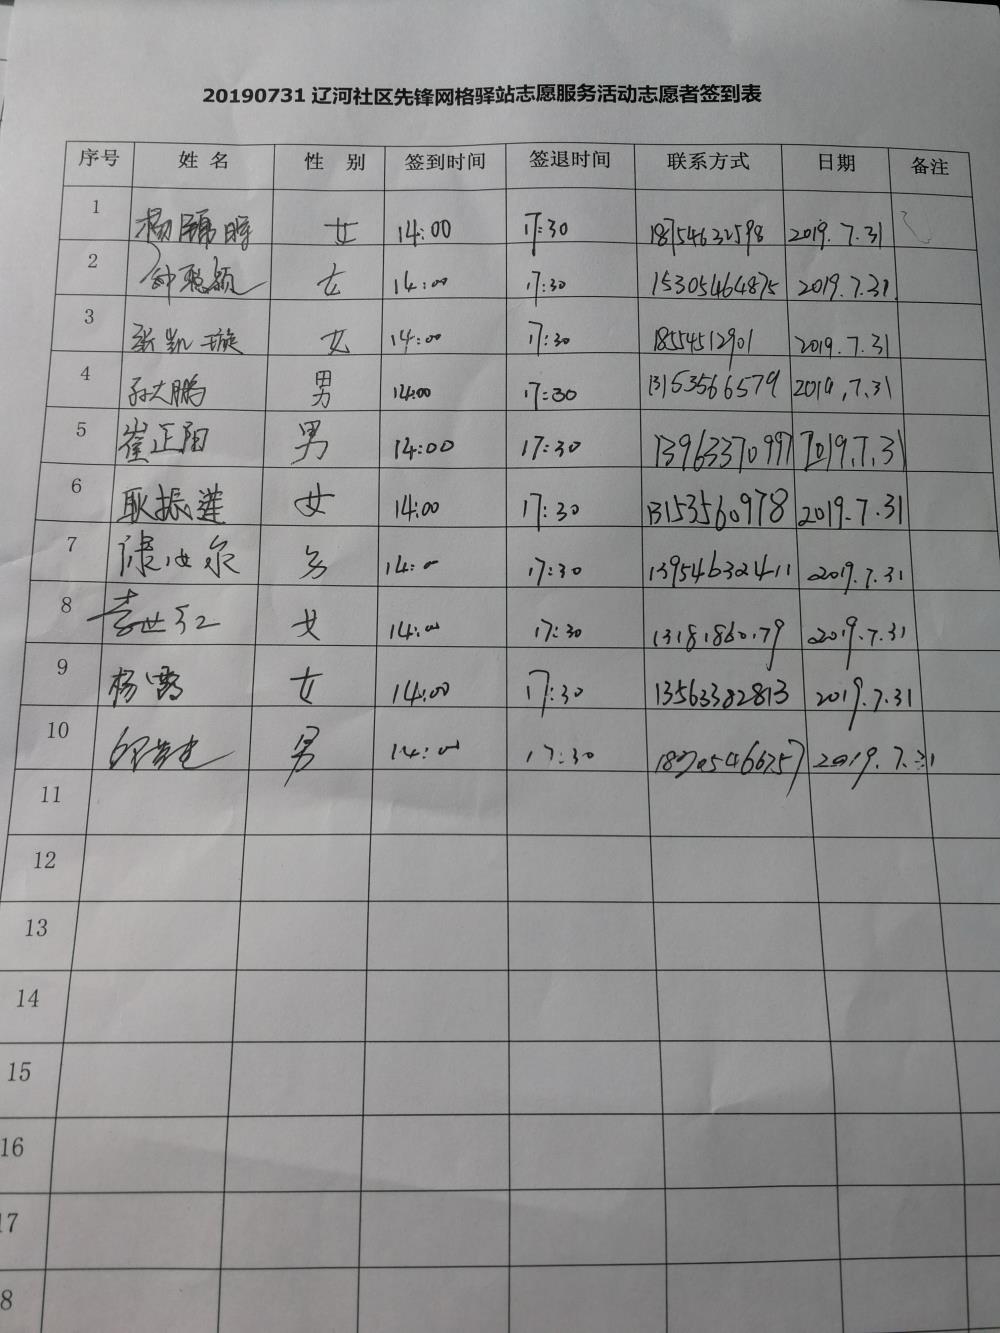 20190731 辽河社区先锋网格驿站志愿服务活动志愿者签到表
序号 姓 名 性 别 签到时间 签退时间 联系方式 日期 备注
1 杨 女 14:00 17:30 18754632598 2019.7.31
2 钟聪颖 女 14:00 17:30 15305464875 2019.7.31
3 张凯璇 女 14:00 17:30 18554512901 2019.7.31
4 孙大鹏 男 14:00 17:30 13153566579 2019.7.31
5 崔正阳 男 14:00 17:30 13963370997 2019.7.31
6 耿振莲 女 14:00 17:30 13153560978 2019.7.31
7 14:00 17:30 13954632411 2019.7.31
8 李世红 女 14:00 17:30 13181860179 2019.7.31
9 杨露 女 14:00 17:30 13563382813 2019.7.31
10 男 14:00 17:30 2019.7.31
11
12
13
14
15
16
17
8